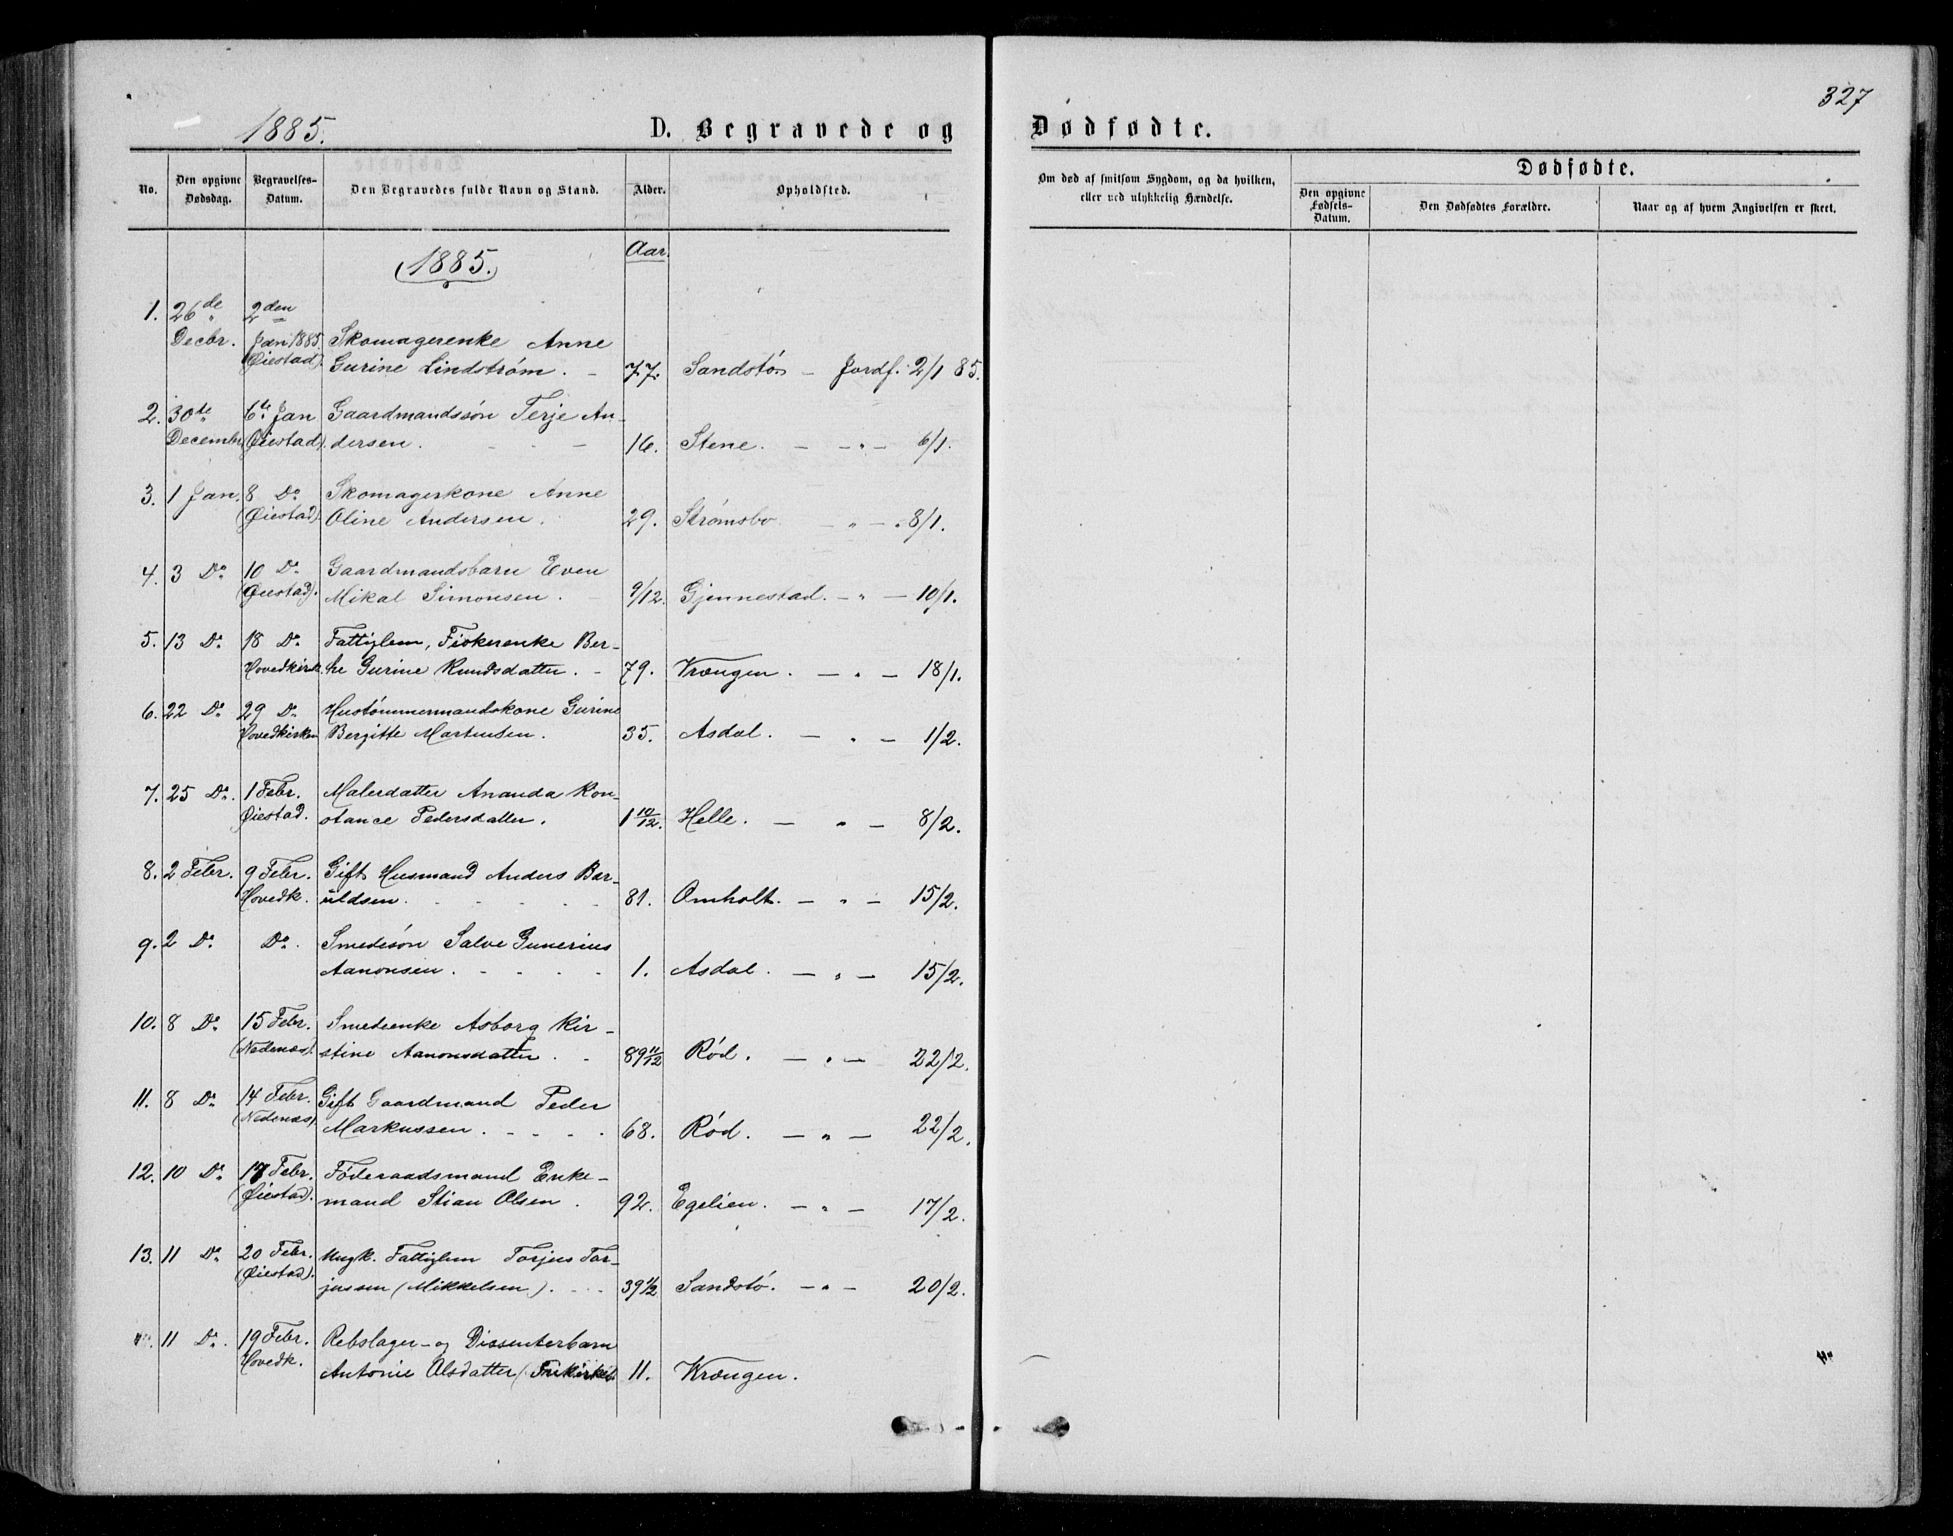 327
1885.
D. Begravede og
Dødfødte.
No.
Den opgivne Dødsdag.
Begravelses-Datum.
Den Begravedes fulde Navn og Stand.
Alder.
Opholdsted.
Om død af smitsom Sygdom, og da hvilken,
eller ved ulykkelig Hændelse.
Dødfødte.
Den opgivne Fødsels-Datum.
Den Dødfødtes Forældre.
Naar og af hvem Angivelsen er skeet.
1885.
Aar.
1. 26de 2den
Decbr. Jan 1885. Skomagerenke Anne
(Øiestad). Gurine Lindström. 77. Sandstö Jordf. 2/1 85.
2. 30te 6te Jan Gaardmandssön Terje An-
December (Øiestad). dersen. 16. Stene. — „ — 6/1.
3. 1 Jan. 8 Do Skomagerkone Anne
(Øiestad). Oline Andersen. 29. Strömsbo. — „ — 8/1.
4. 3 Do 10 Do Gaardmandsbarn Even
(Øiestad). Mikal Simonsen. 9/12. Gjennestad. — „ — 10/1.
5. 13 Do 18 Do Fattiglem, Fiskerenke Ber-
Hovedkirk. the Gurine Knudsdatter. 79. Vrængen. — „ — 18/1.
6. 22 Do 29 Do Hustömmermandskone Gurine
Hovedkirken Bergitte Martinsen. 35. Asdal. — „ — 1/2.
7. 25 Do. 1 Febr. Malerdatter Ananda Kon-
Øiestad. stance Pedersdatter. 1 10/12. Helle. — „ — 8/2.
8. 2 Febr. 9 Febr. Gift Husmand Anders Bar-
Hovedk. üldsen. 81. Omholt. — „ — 15/2.
9. 2 Do Do. Smedesön Salve Gunerius
Aanonsen. 1. Asdal. — „ — 15/2.
10. 8 Do 15 Febr. Smedeenke Asborg Kir-
(Nedenæs). stine Aanonsdatter. 89 11/12 Röd. — „ — 22/2.
11. 8 Do 14 Febr. Gift Gaardmand Peder
(Nedenæs) Markussen. 68. Röd. — „ — 22/2.
12. 10 Do 17 Febr. Föderaadsmand Enke-
(Øiestad). mand Stian Olsen. 92. Egelien. — „ — 17/2.
13. 11 Do 20 Febr. Ungk. Fattiglem Torjus Tor-
(Øiestad). jussen (Mikkelsen). 39 1/2 Sandstö. — „ — 20/2.
11 Do. 19 Febr. Rebslager- og Dissenterbarn
Hovedk. Antonie Olsdatter (Frikirkel. 11. Krængen.